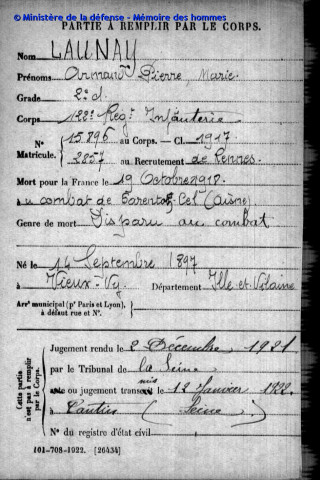 © Ministère de la défense - Mémoire des hommes
PARTIE À REMPLIR PAR LE CORPS.
Nom LAUNAY
Prénoms Armand Pierre Marie
Grade 2e cl.
Corps 122e Rég.t Infanterie
N° 15896 au Corps. — Cl. 1917
Matricule. 3857 au Recrutement de Rennes.
Mort pour la France le 19 Octobre 1918.
à au combat de Parenton-Cel (Aisne)
Genre de mort Disparu au combat
Né le 14 Septembre 1897
à Vieux-Vy. Département Ille et Vilaine
Arrt municipal (pr Paris et Lyon),
à défaut rue et N°.
Cette partie n'est pas à remplir par le Corps.
Jugement rendu le 2 Décembre 1921
par le Tribunal de la Seine
acte ou jugement transcrit le 12 Janvier 1922.
à Pantin (Seine)
N° du registre d'état civil
101-708-1922. [26434]